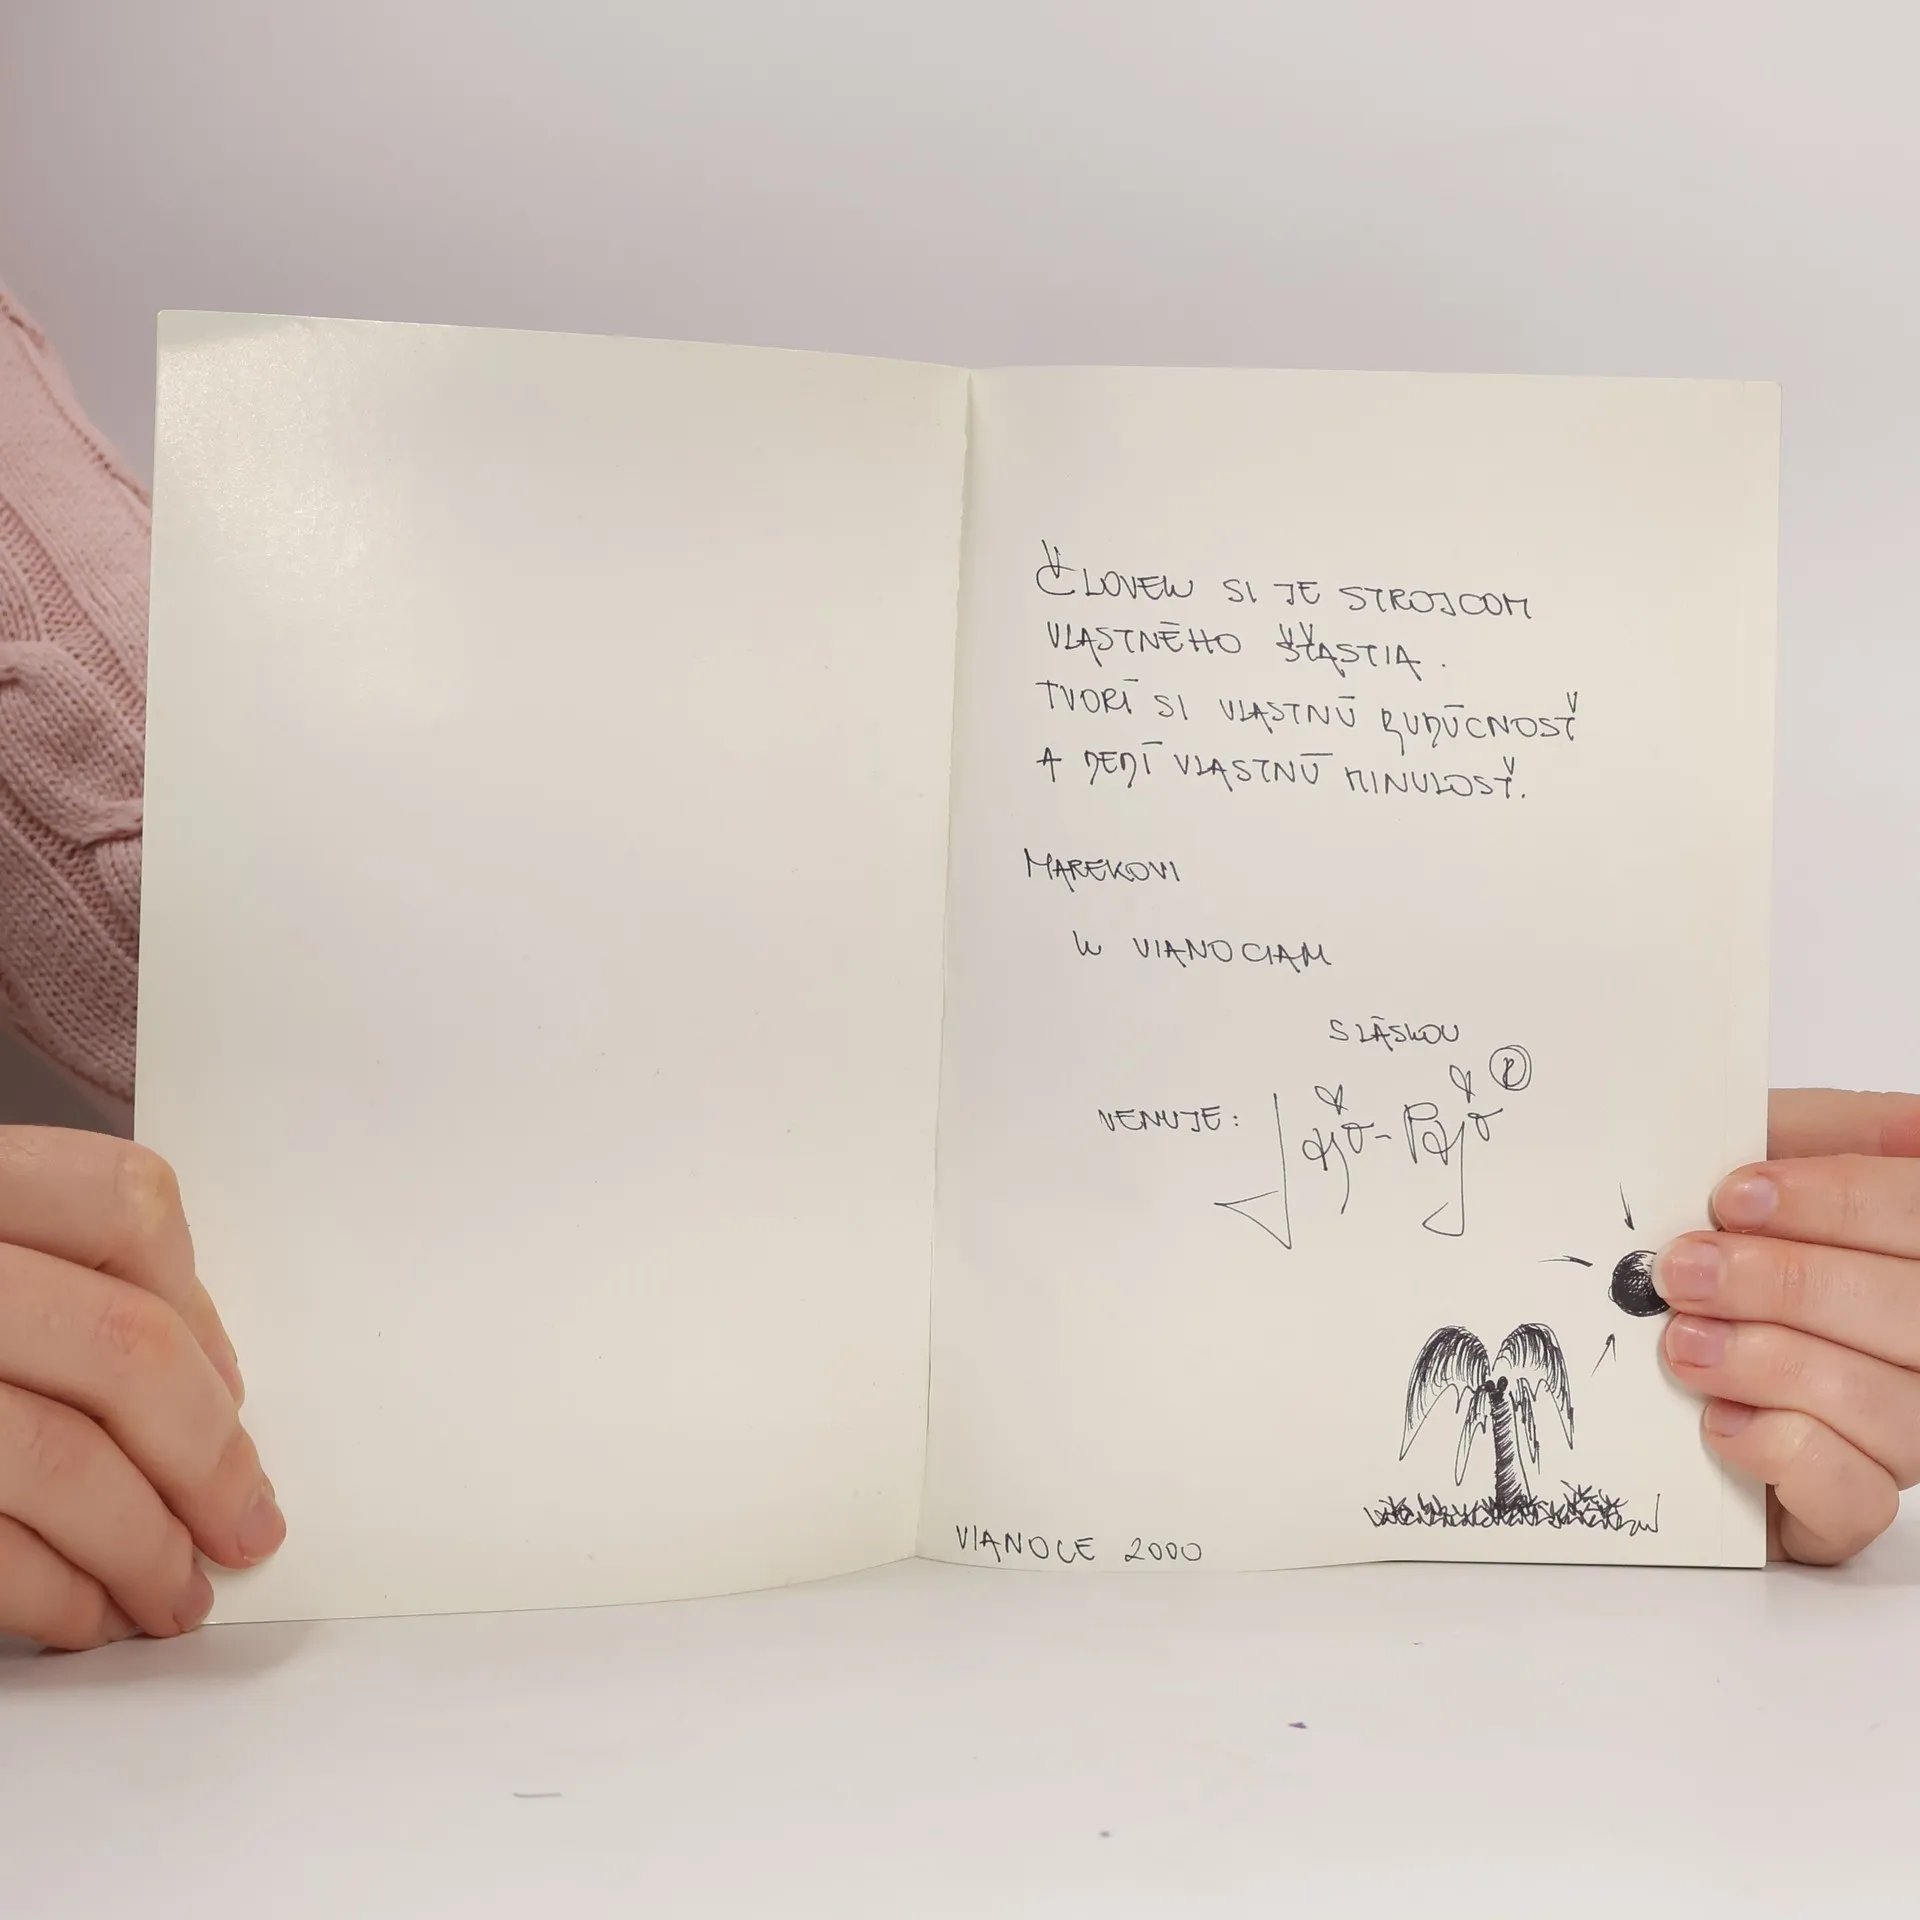 ČLOVEK SI JE STROJCOM
VLASTNÉHO ŠŤASTIA.
TVORÍ SI VLASTNÚ BUDÚCNOSŤ
A DEDÍ VLASTNÚ MINULOSŤ.
MAREKOVI
K VIANOCIAM
S LÁSKOU
VENUJE:
VIANOCE 2000